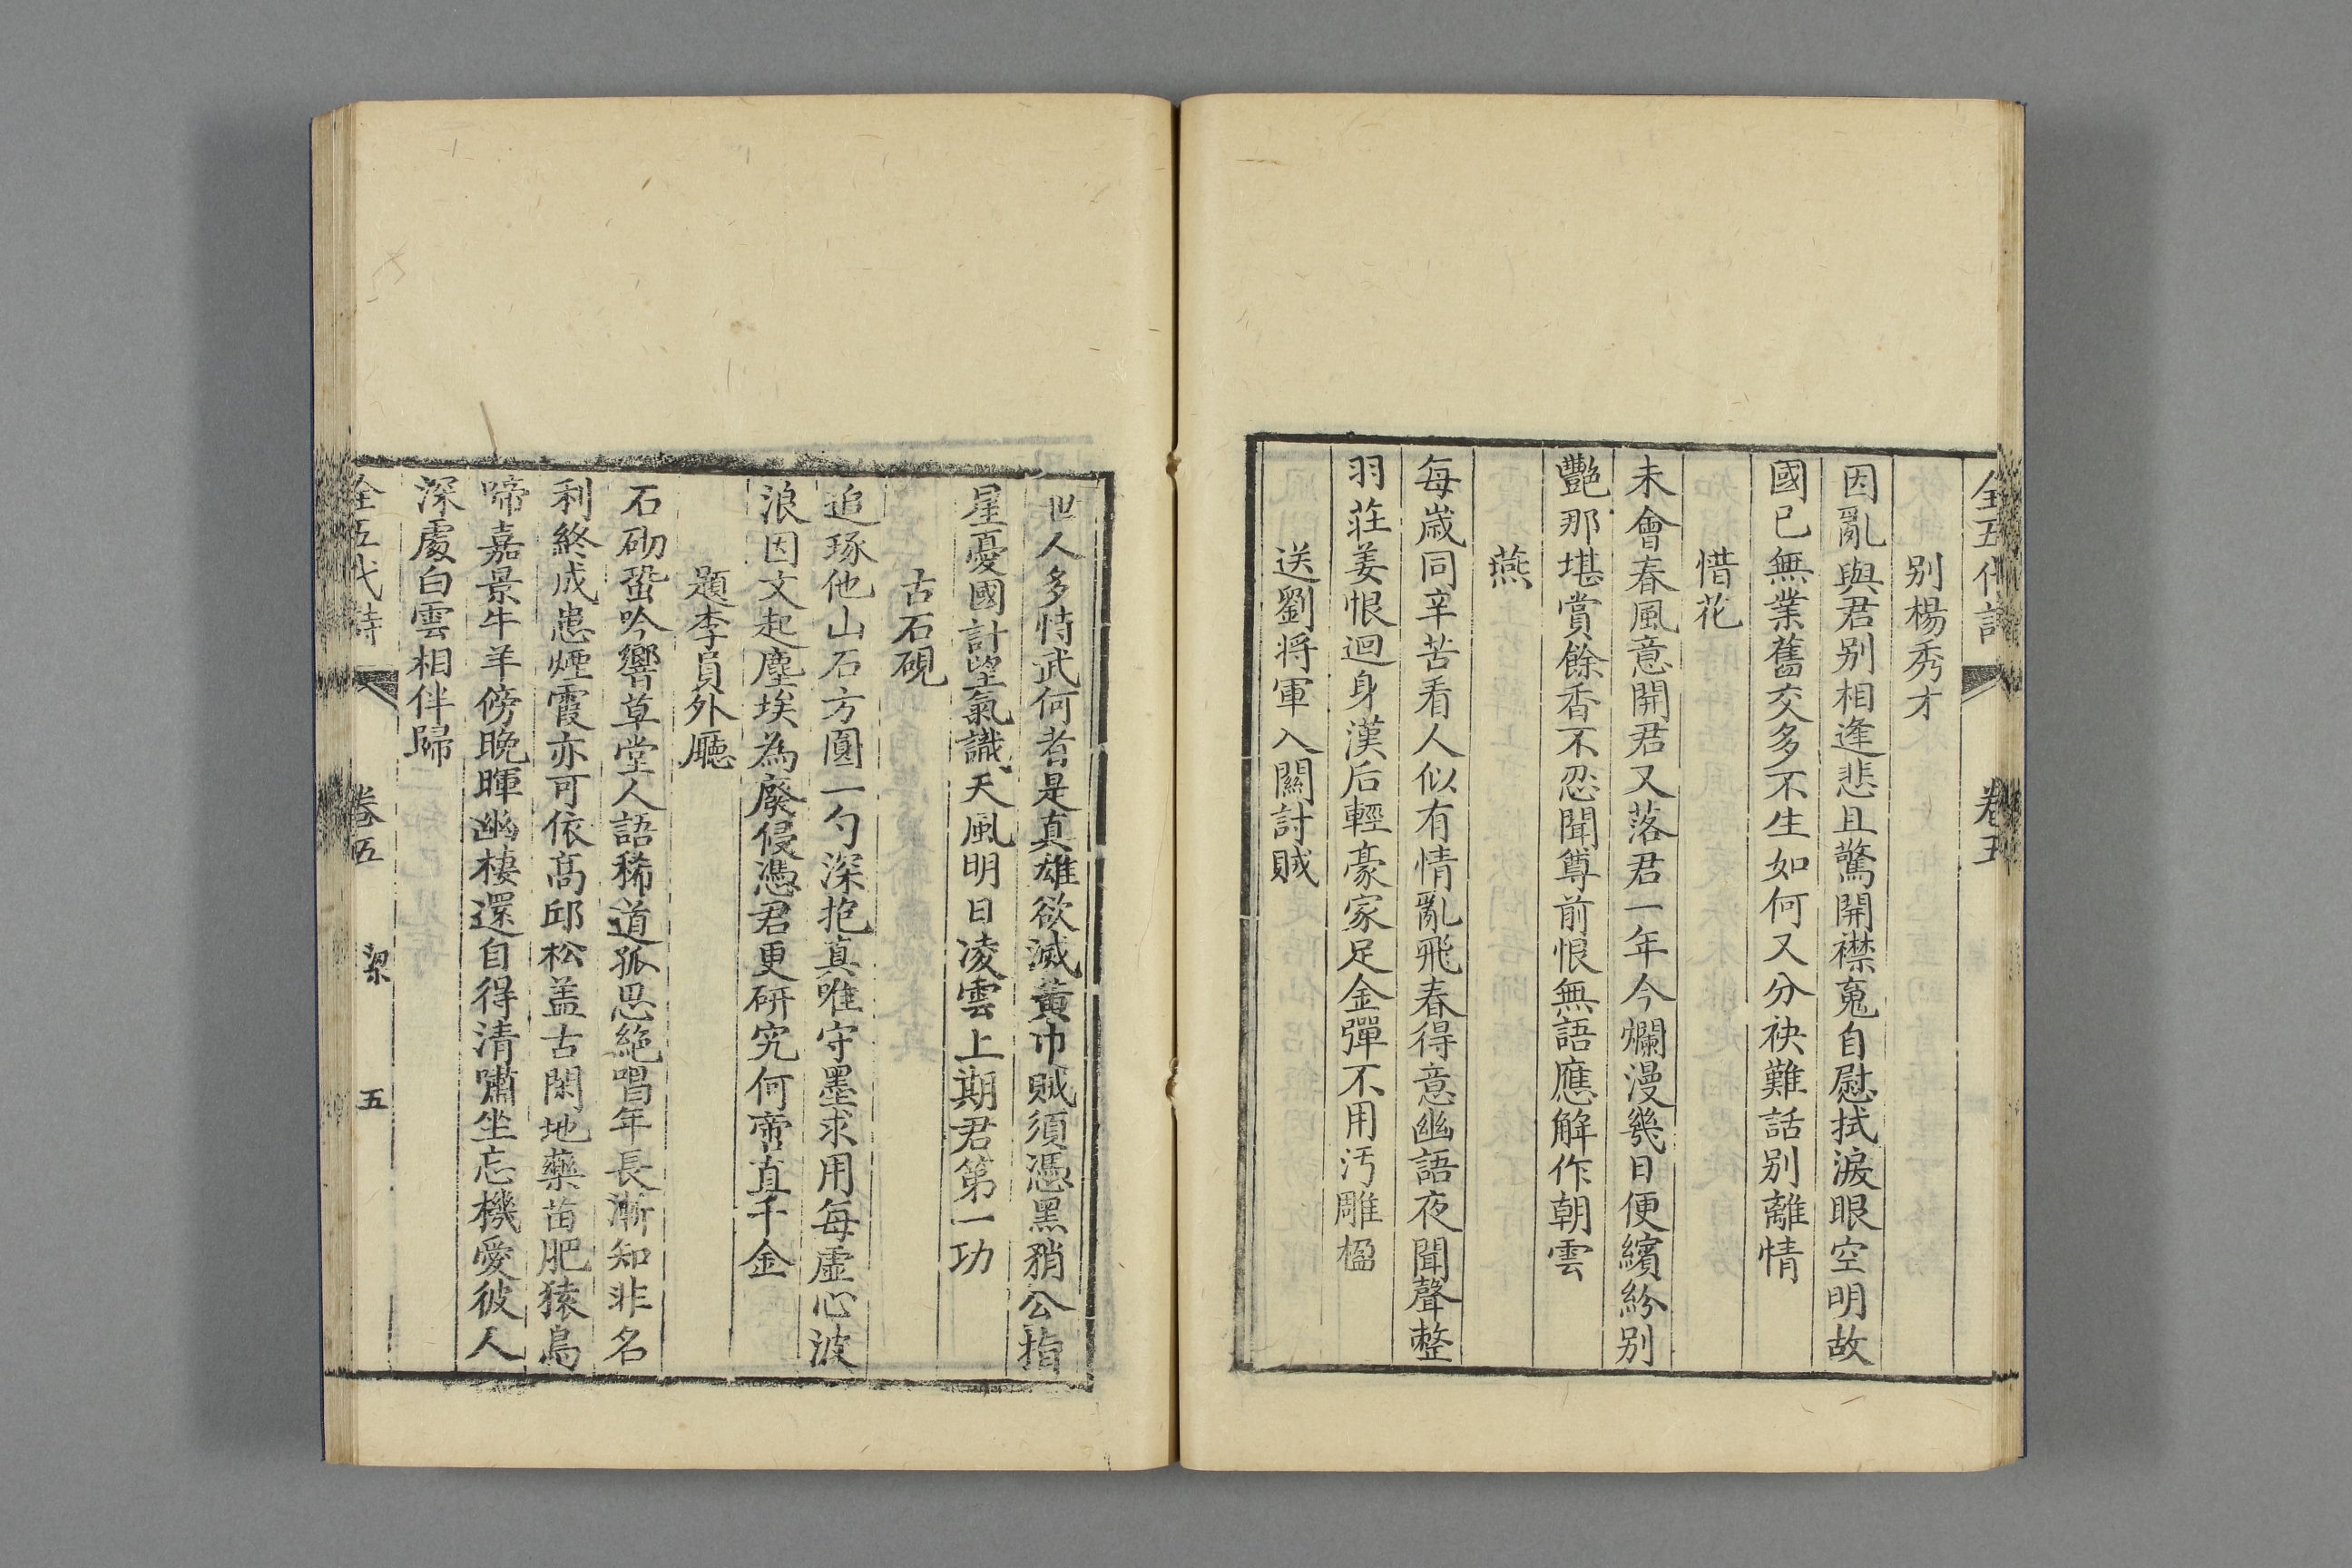 全五代詩 卷五
别楊秀才
因亂與君别相逢悲且驚開襟䰟自慰拭淚眼空明故
國已無業舊交多不生如何又分袂難話别離情
惜花
未會春風意開君又落君一年今爛漫幾日便繽紛别
艷那堪賞餘香不忍聞尊前恨無語應解作朝雲
燕
每歲同辛苦看人似有情亂飛春得意幽語夜聞聲整
羽莊姜恨迴身漢后輕豪家足金彈不用汚雕楹
送劉將軍入關討賊
世人多恃武何者是真雄欲滅黃巾賊須憑黑矟公指
星憂國計望氣識天風明日凌雲上期君第一功
古石硯
追琢他山石方圓一勺深抱真唯守墨求用每虛心波
浪因文起塵埃為廢侵憑君更研究何啻直千金
題李員外廳
石砌蛩吟響草堂人語稀道孤思絶唱年長漸知非名
利終成患煙霞亦可依高邱松蓋古閑地藥苗肥猿鳥
啼嘉景牛羊傍晚暉幽棲還自得清嘯坐忘機愛彼人
深處白雲相伴歸
全五代詩 卷五 梁 五